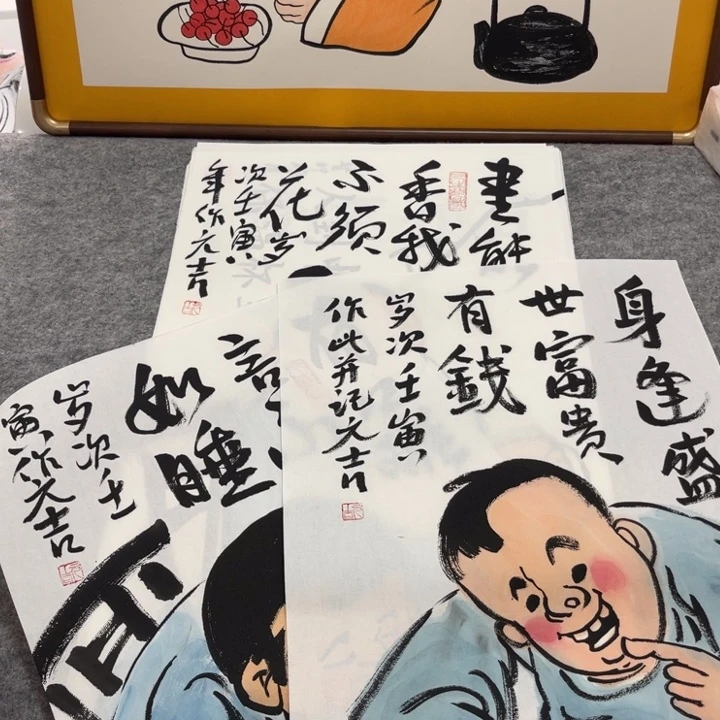 書能
香我
不须
花岁
次壬寅
年作元吉
身逢盛
世富贵
有錢
岁次壬寅
作此并记元吉
如睡
岁次壬
寅作元吉